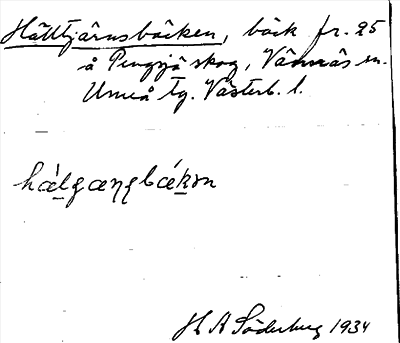 Hälltjärnsbäcken, bäck fr. 25
å Pengsjö skog, Vännäs sn.
Umeå tg. Västerb. l.
H A Söderberg 1934